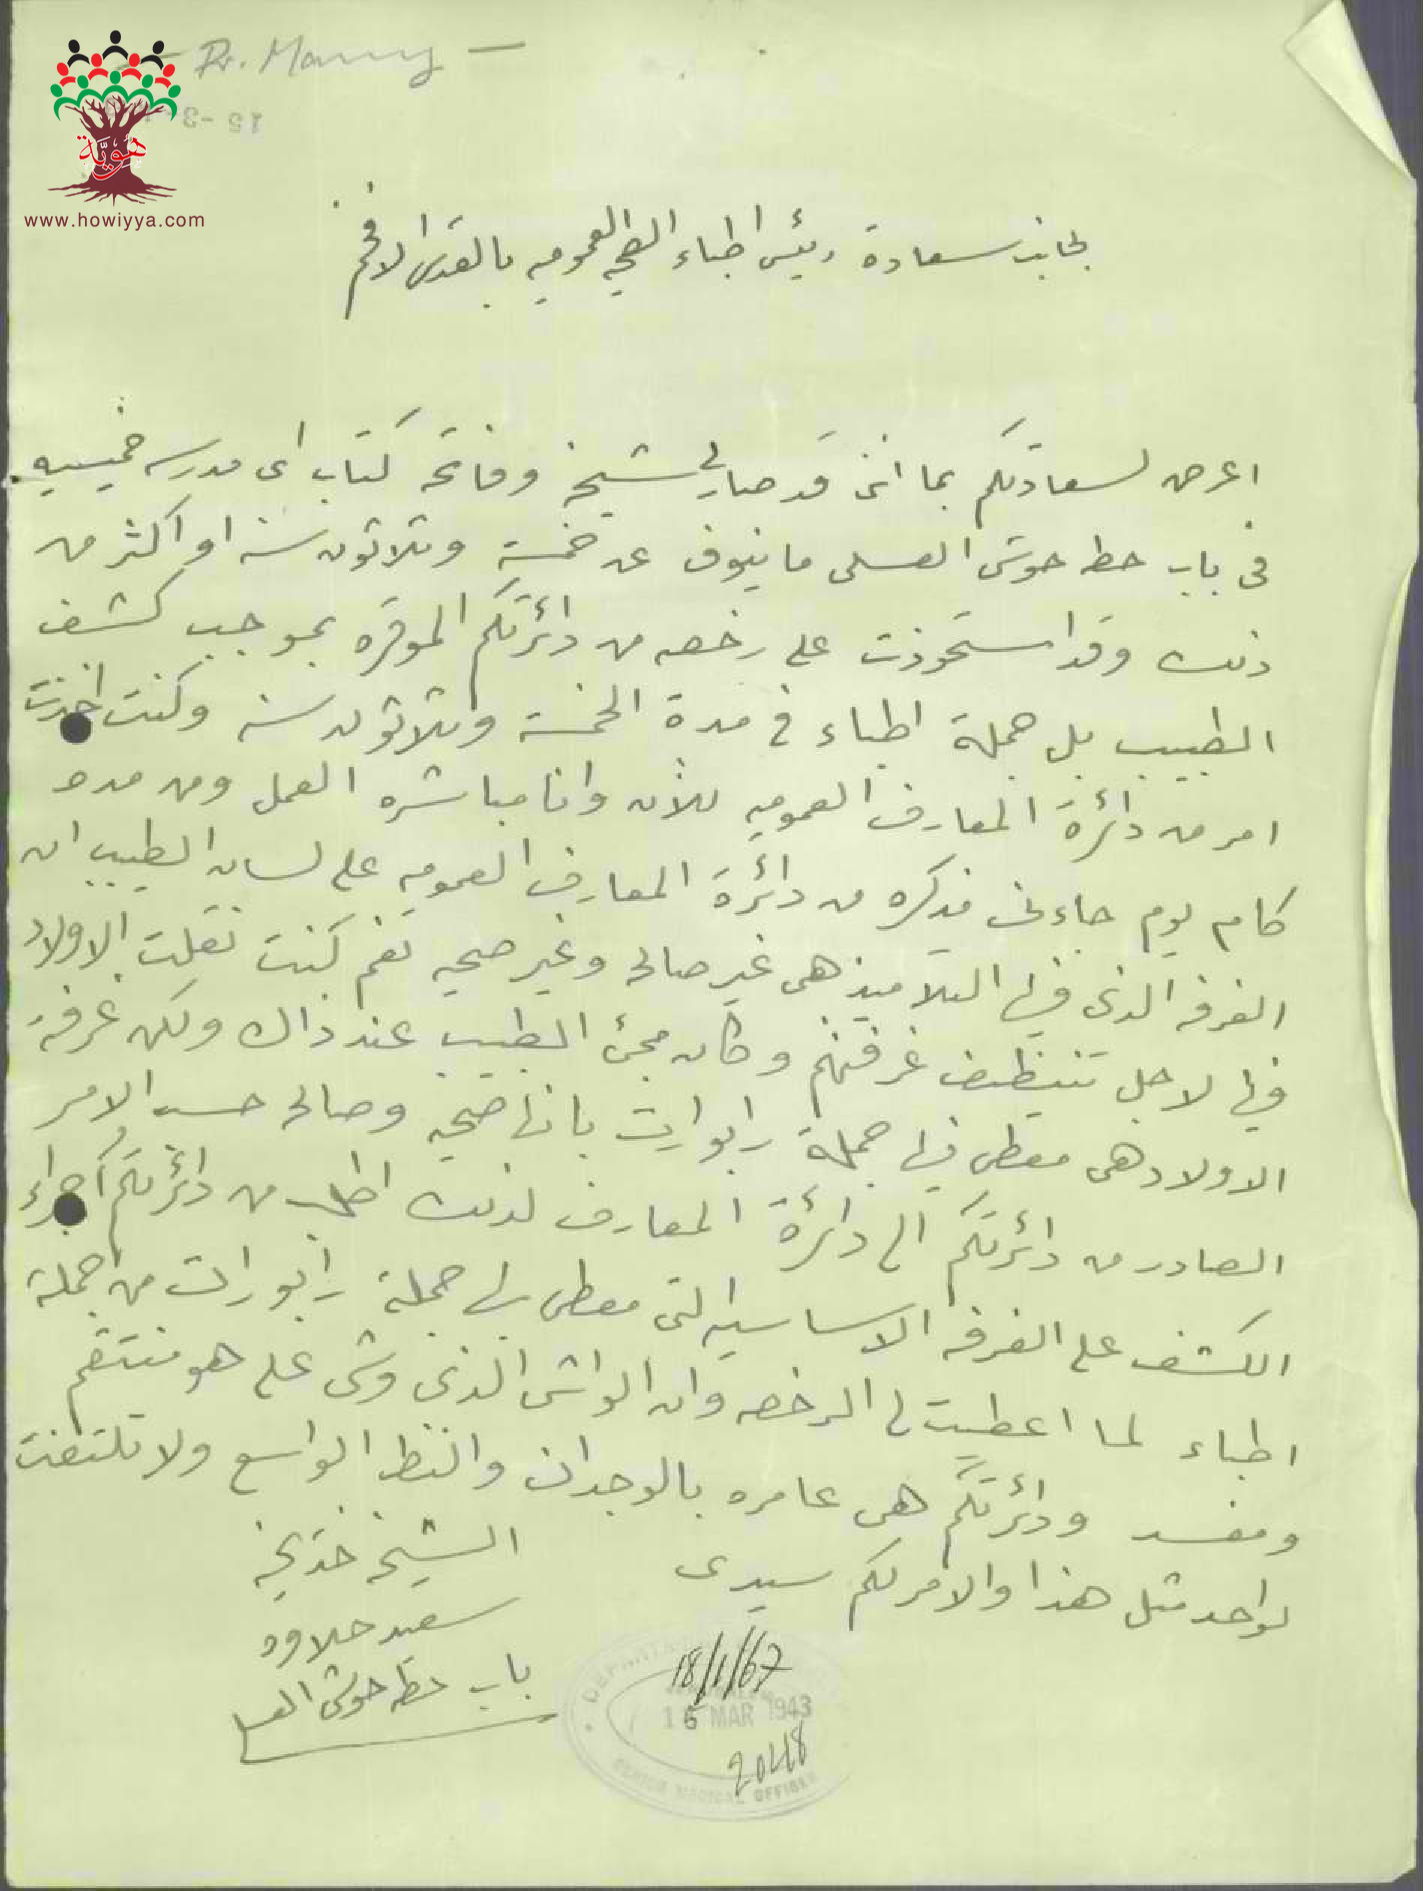 Dr. Manny
هويّة
www.howiyya.com
لجانب سعادة رئيس اطباء الصحيه العموميه بالقدس الافخم
اعرض لسعادتكم بما انني قد صار لي شيخه وفاتحه كتاب اي مدرسه خميسيه
في باب حطه حوش العسلي ما ينوف عن خمسة وثلاثون سنه او اكثر من
ذلك وقد استحوذت على رخصه من دائرتكم الموقره بموجب كشف
الطبيب بل جملة اطباء في مدة الخمسة وثلاثون سنه وكنت اخذت
امر من دائرة المعارف العموميه للآن وانا مباشره العمل ومن مدة
كام يوم جاءني مذكره من دائرة المعارف العموميه على لسان الطبيب ان
الغرفه الذي فيها التلاميذ هي غير صالحه وغير صحيه نعم كنت نقلت الاولاد
فيها لاجل تنظيف غرفتهم وكان مجئ الطبيب عند ذاك ولكن غرفة
الاولاد هي معطى فيها جملة رابورات بانها صحيه وصالحه حسب الامر
الصادر من دائرتكم الى دائرة المعارف لذلك اطلب من دائرتكم اجراء
الكشف على الغرفه الاساسيه التي معطى بها جملة رابورات من جملة
اطباء لما اعطيت لي الرخصه وان الواشي الذي وشى علي هو منتقم
ومفسد ودائرتكم هي عامره بالوجدان والنظر الواسع ولا تلتفت
لواحد مثل هذا والامر لكم سيدي
الشيخه خديجه
سعيد حلاوه
باب حطه حوش العسلي
18/1/67
15 MAR 1943
2048
SENIOR MEDICAL OFFICER